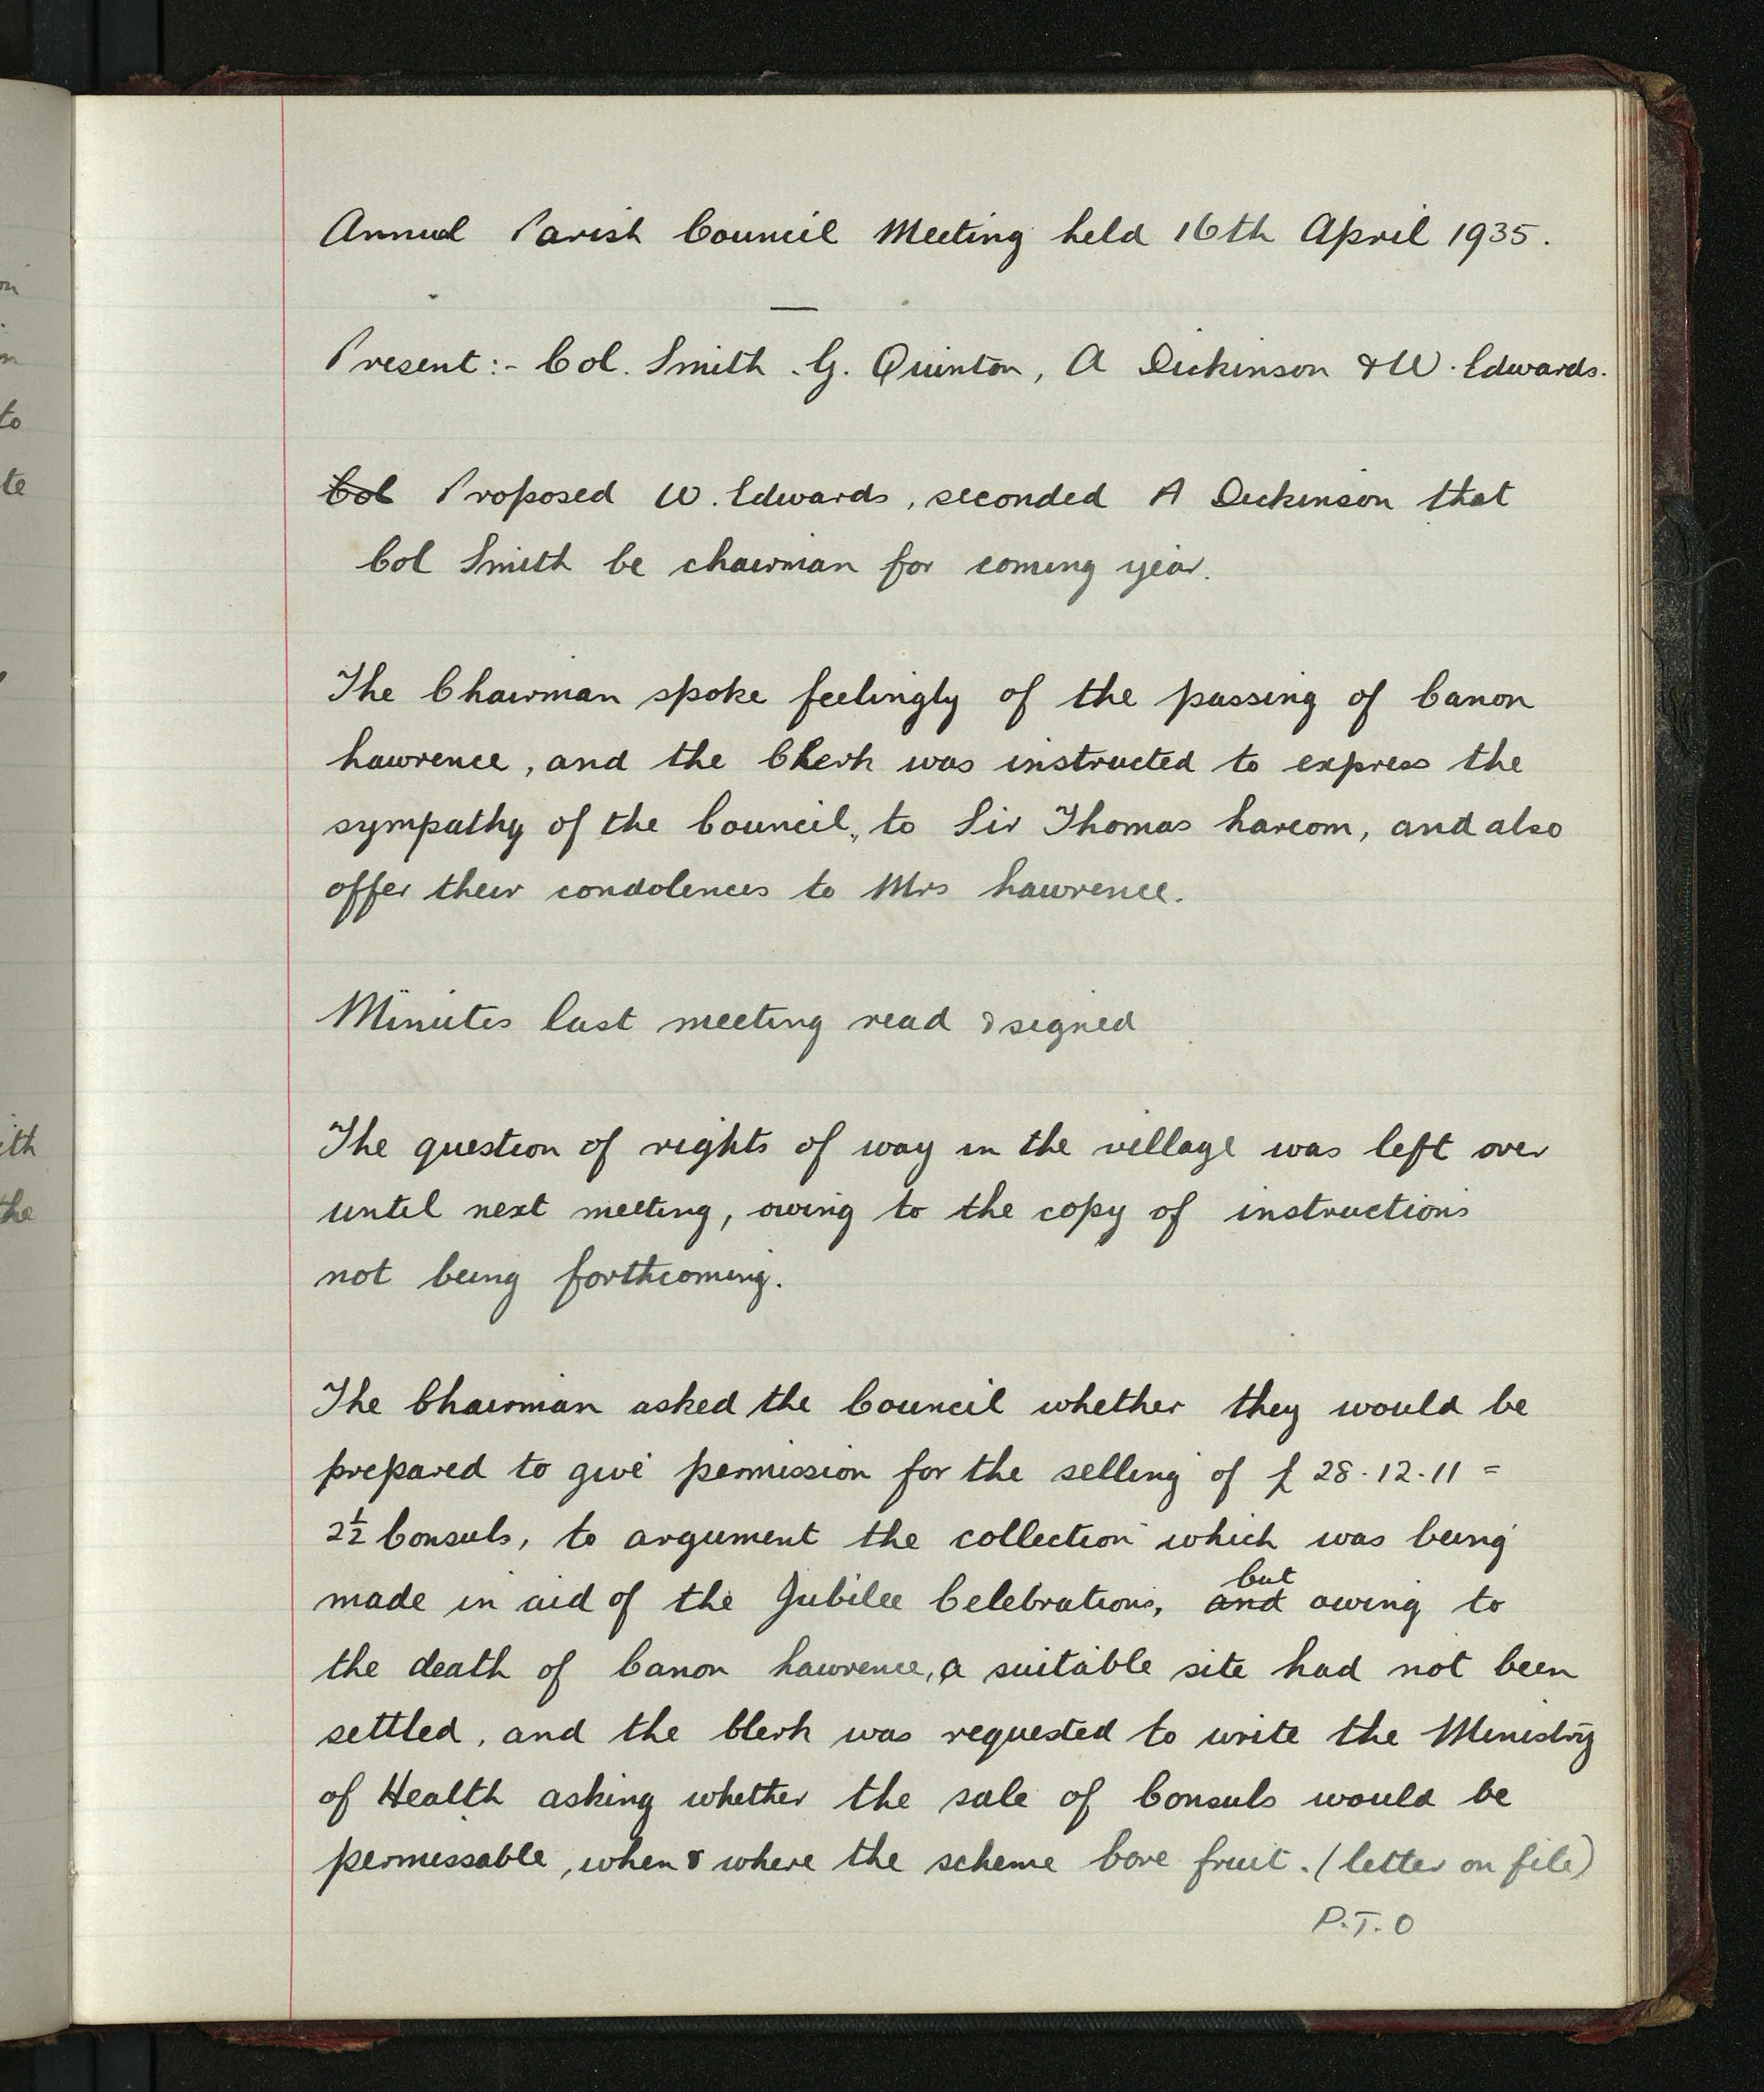 Annual Parish Council Meeting held 16th April 1935.
Present:- Col. Smith. G. Quinton, A Dickinson & W. Edwards.
Col Proposed W. Edwards, seconded A Dickinson that
Col Smith be chairman for coming year.
The Chairman spoke feelingly of the passing of Canon
Lawrence, and the Clerk was instructed to express the
sympathy of the Council, to Sir Thomas Larcom, and also
offer their condolences to Mrs Lawrence.
Minutes last meeting read & signed
The question of rights of way in the village was left over
until next meeting, owing to the copy of instructions
not being forthcoming.
The Chairman asked the Council whether they would be
prepared to give permission for the selling of £ 28.12.11 =
2½ Consuls, to argument the collection which was being
made in aid of the Jubilee Celebrations, and but owing to
the death of Canon Lawrence, a suitable site had not been
settled, and the Clerk was requested to write the Ministry
of Health asking whether the sale of Consuls would be
permissable, when & where the scheme bore fruit. (letter on file)
P.T.O
on
n
to
te
ith
the